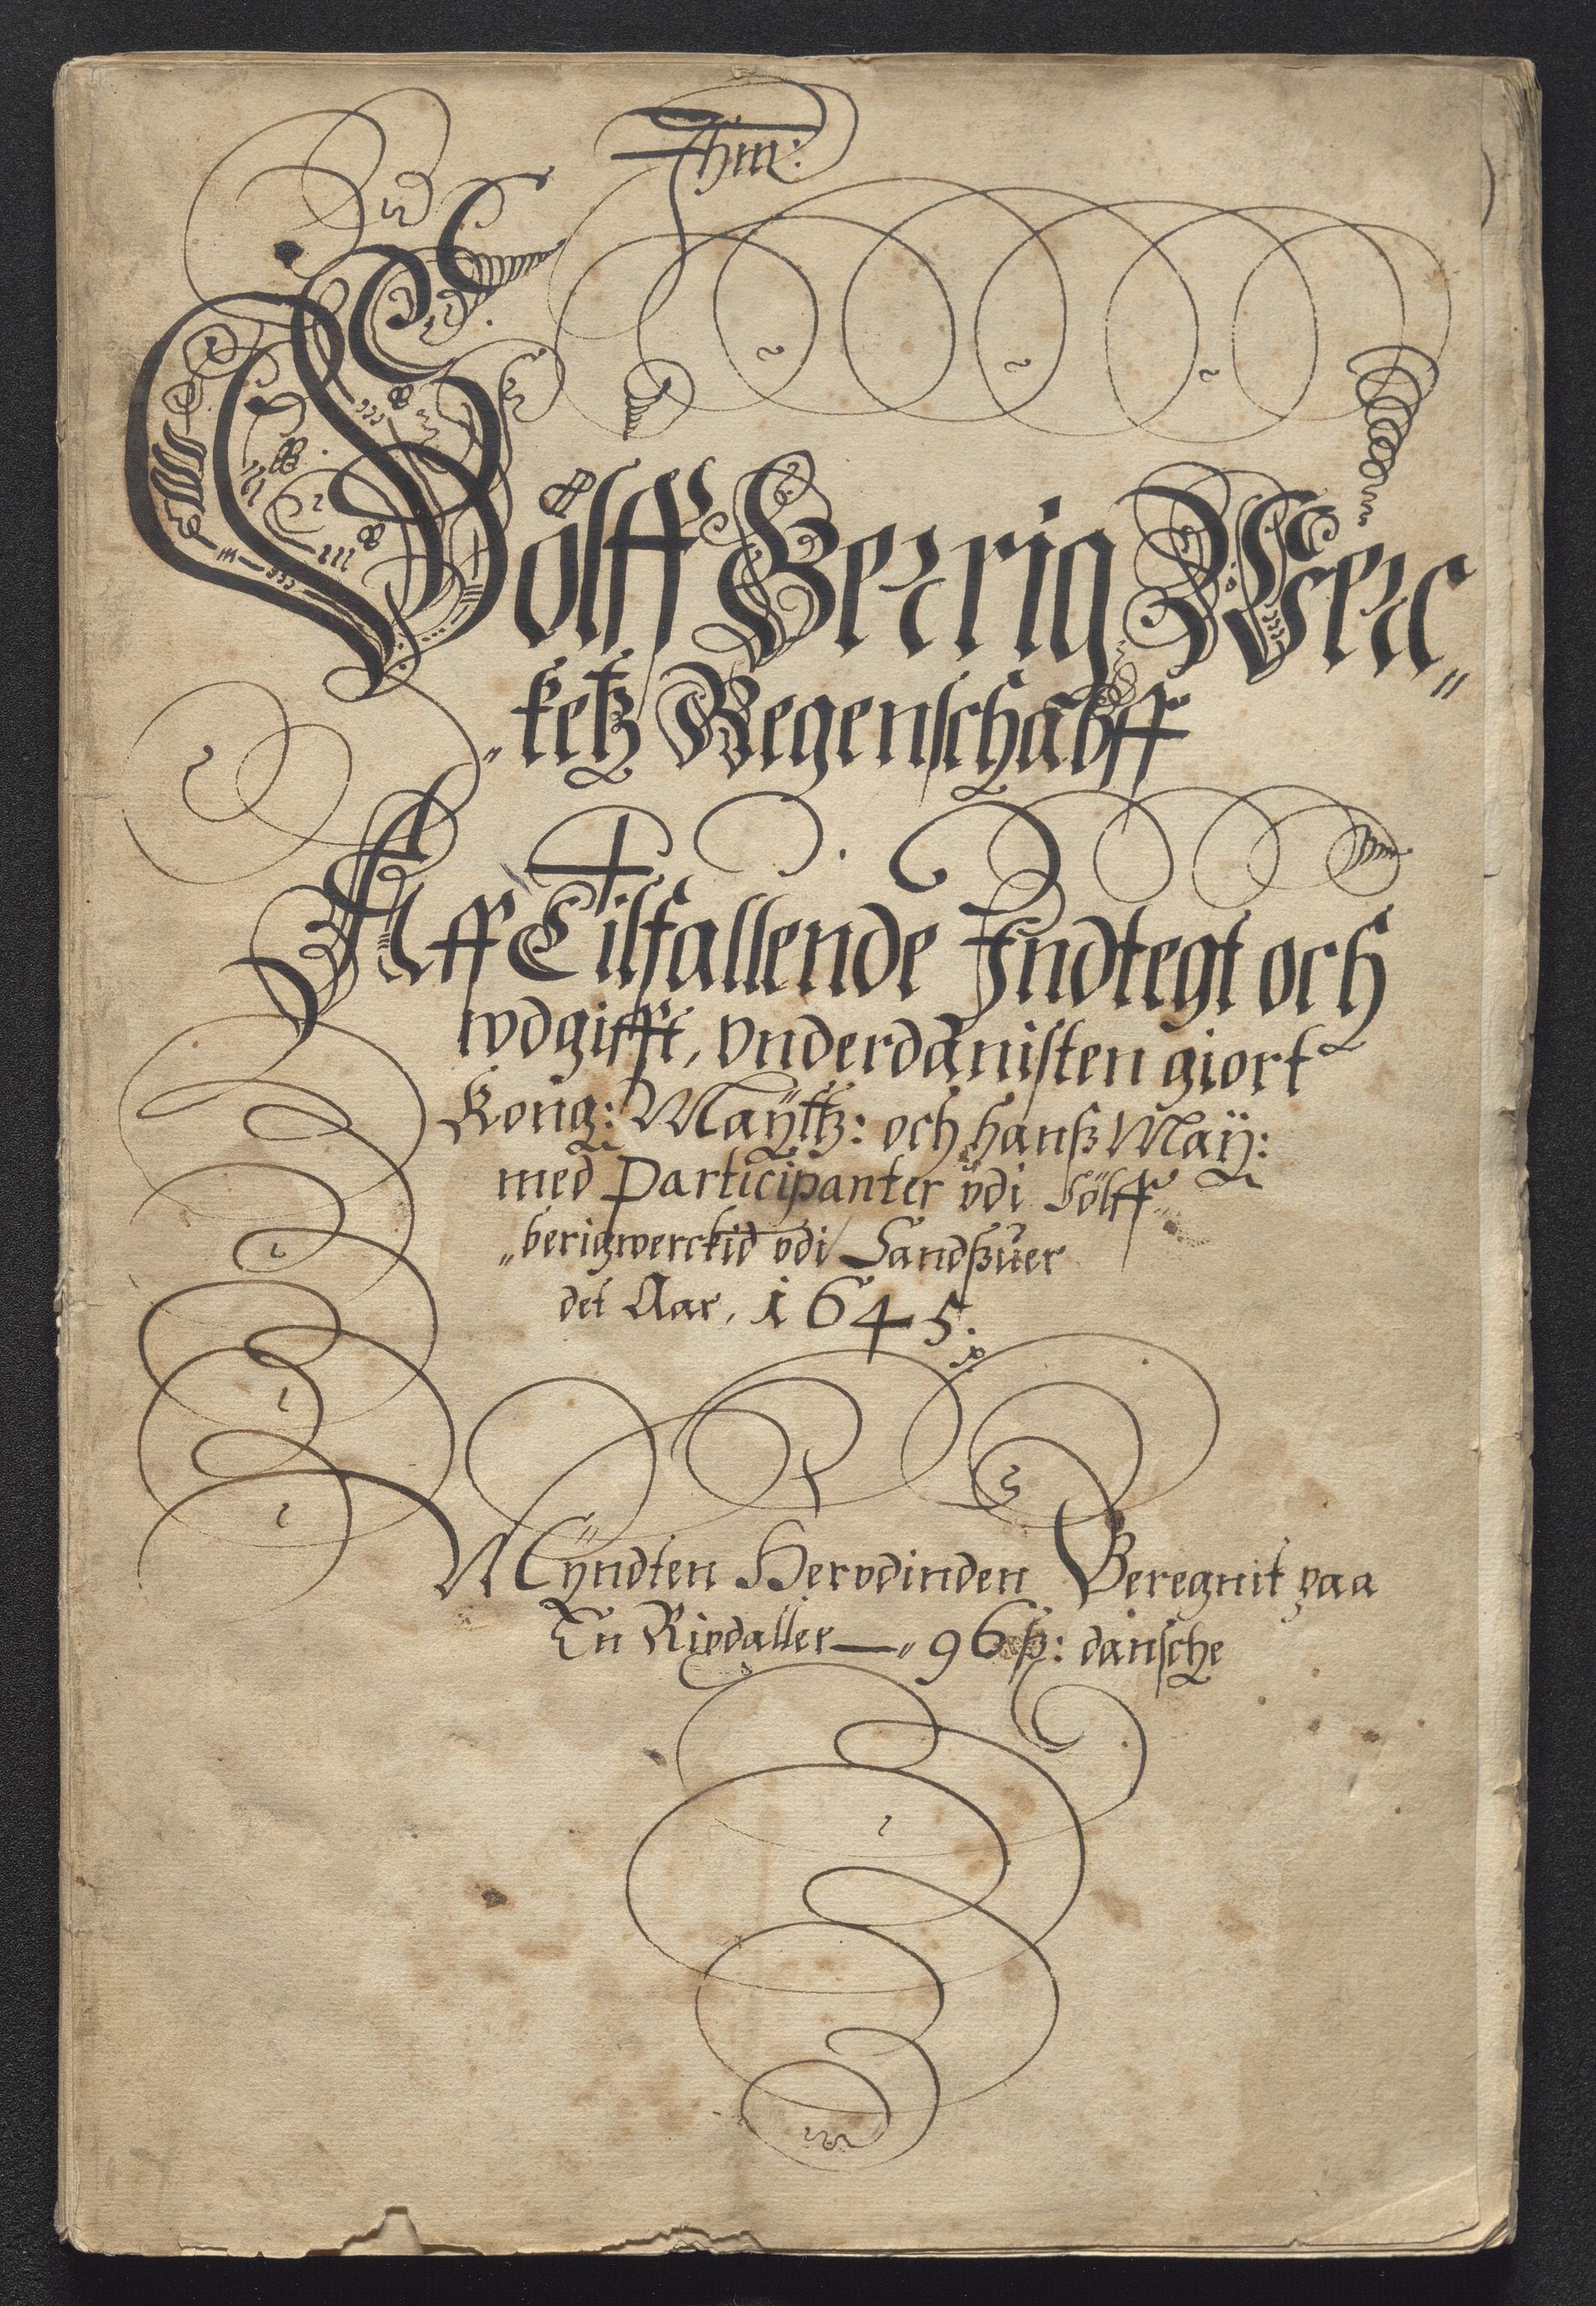 Sölff Berrig Werc„
„ketz Regenschabff
Aff Tilfallende Indtegt och
wdgifft, vnderdånisten giort
Konig: Maÿttz: och hansz Maÿ:
med Participanter vdi Sölff
„berigwerckid vdi Sandszuer
det Aar, 1645.
Mÿndten Hervdinden Beregnit paa
En Rixdaller — „ 96 sz: dansche